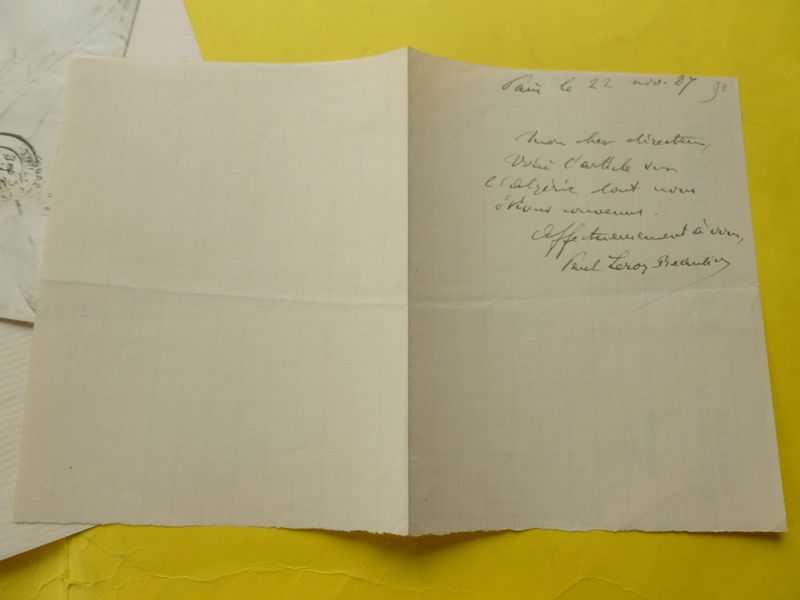 Paris le 22 nov. 87 90
Mon cher directeur,
Voici l'article sur
l'Algérie dont nous
étions convenus.
Affectueusement à vous,
Paul Leroy Beaulieu